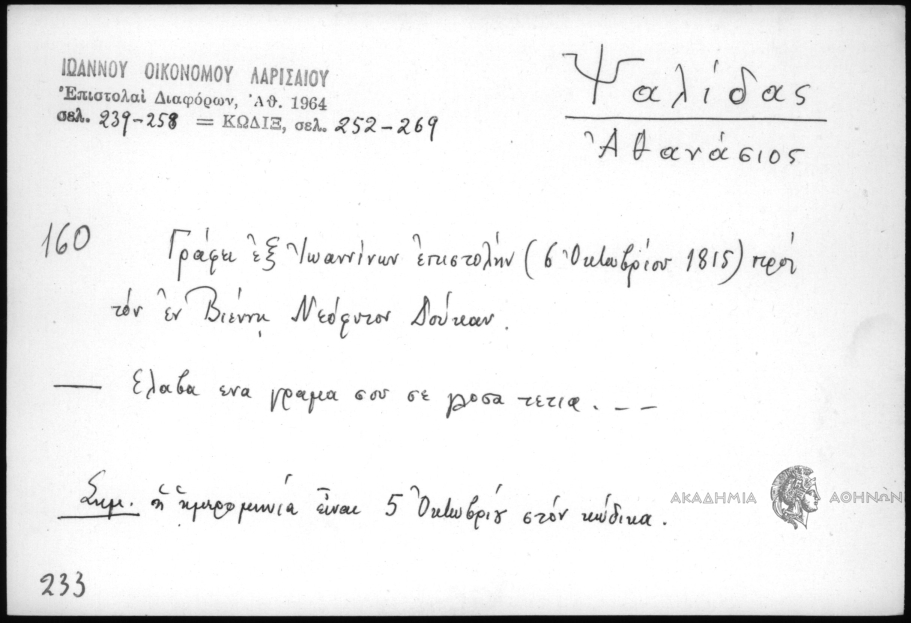 ΙΩΑΝΝΟΥ ΟΙΚΟΝΟΜΟΥ ΛΑΡΙΣΑΙΟΥ
Ἐπιστολαὶ Διαφόρων, Ἀθ. 1964
σελ. 239-258 = ΚΩΔΙΞ, σελ. 252-269
Ψαλίδας
Ἀθανάσιος
160
Γράφει ἐξ Ἰωαννίνων ἐπιστολήν (6 Ὀκτωβρίου 1815) πρός
τόν ἐν Βιέννῃ Νεόφυτον Δούκαν.
— Ελαβα ενα γραμα σου σε γλοσα τετια. - -
Σημ. ἡ ἡμερομηνία εἶναι 5 Ὀκτωβρίȣ στόν κώδικα.
ΑΚΑΔΗΜΙΑ ΑΘΗΝΩΝ
233